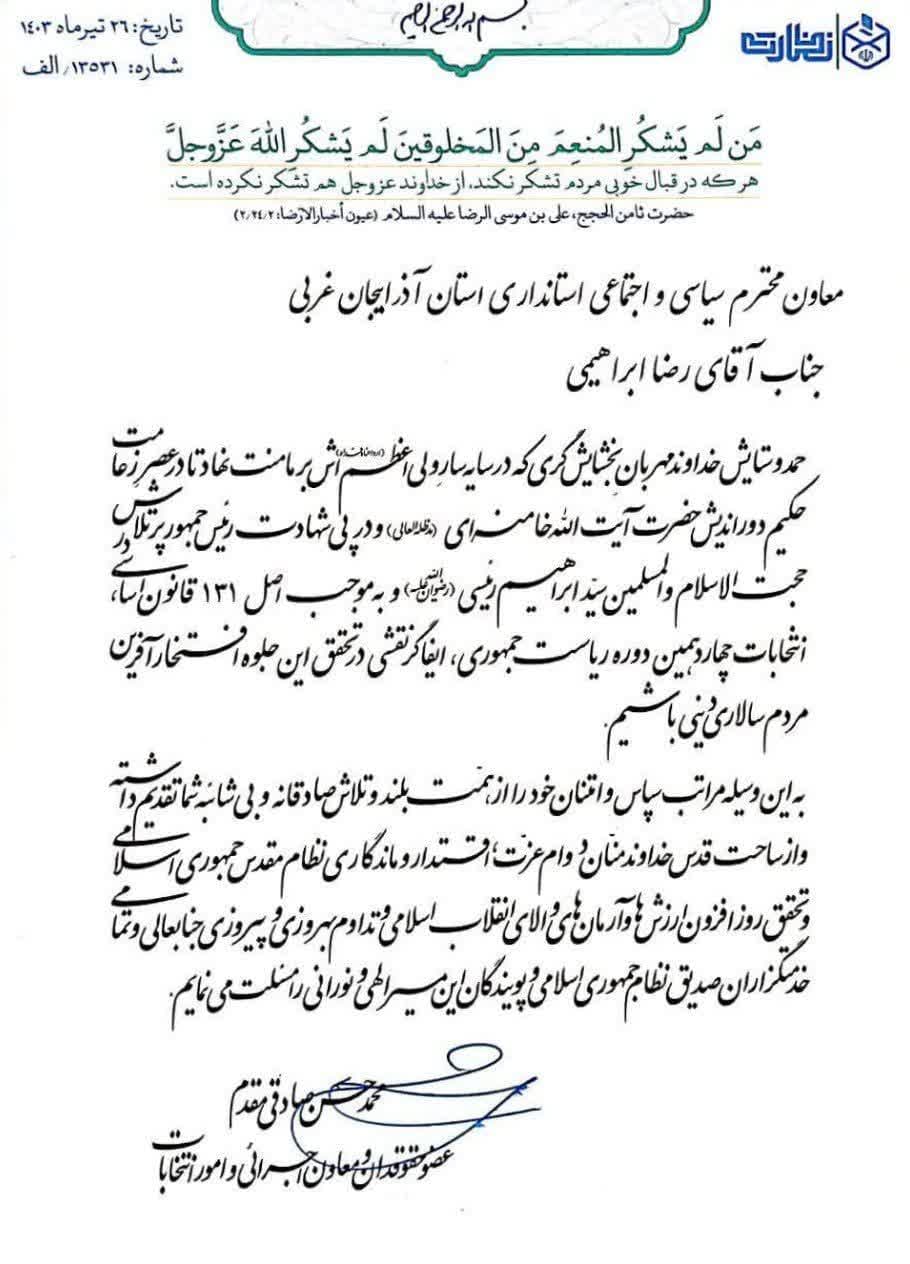 بسم الله الرحمن الرحیم
نظارت
تاریخ: ۲۶ تیرماه ۱۴۰۳
شماره: ۱۳۵۳۱/الف
مَن لَم یَشکُرِ المُنعِمَ مِنَ المَخلوقینَ لَم یَشکُرِ اللهَ عَزَّوجلَّ
هر که در قبال خوبی مردم تشکر نکند، از خداوند عزوجل هم تشکر نکرده است.
حضرت ثامن الحجج، علی بن موسی الرضا علیه السلام (عیون أخبارالرضا: ۲/۲۴/۲)
معاون محترم سیاسی و اجتماعی استانداری استان آذرایجان غربی
جناب آقای رضا ابراهیمی
حمد و ستایش خداوند مهربان بخشایش‌گری که در سایه سار ولی اعظم اش بر ما منت نهاد تا در عصر زعامت
حکیم دوراندیش حضرت آیت الله خامنه‌ای (مدظله‌العالی) و در پی شهادت رئیس جمهور پرتلاش
حجت الاسلام والمسلمین سیّد ابراهیم رئیسی (رضوان الله علیه) و به موجب اصل ۱۳۱ قانون اساسی، در
انتخابات چهاردهمین دوره ریاست جمهوری، ایفاگر نقشی در تحقق این جلوه افتخارآفرین
مردم سالاری دینی باشیم.
به این وسیله مراتب سپاس و امتنان خود را از همّت بلند و تلاش صادقانه و بی شائبه شما تقدیم داشته
و از ساحت قدس خداوند منّان دوام عزت، اقتدار و ماندگاری نظام مقدس جمهوری اسلامی
و تحقق روز افزون ارزش‌ها و آرمان‌های والای انقلاب اسلامی و تداوم بهروزی و پیروزی جنابعالی و تمامی
خدمتگزاران صدیق نظام جمهوری اسلامی و پویندگان این مسیر الهی و نورانی را مسئلت می نمایم.
محمد حسن صادقی مقدم
عضو حقوقدان و معاون اجرائی و امور انتخابات